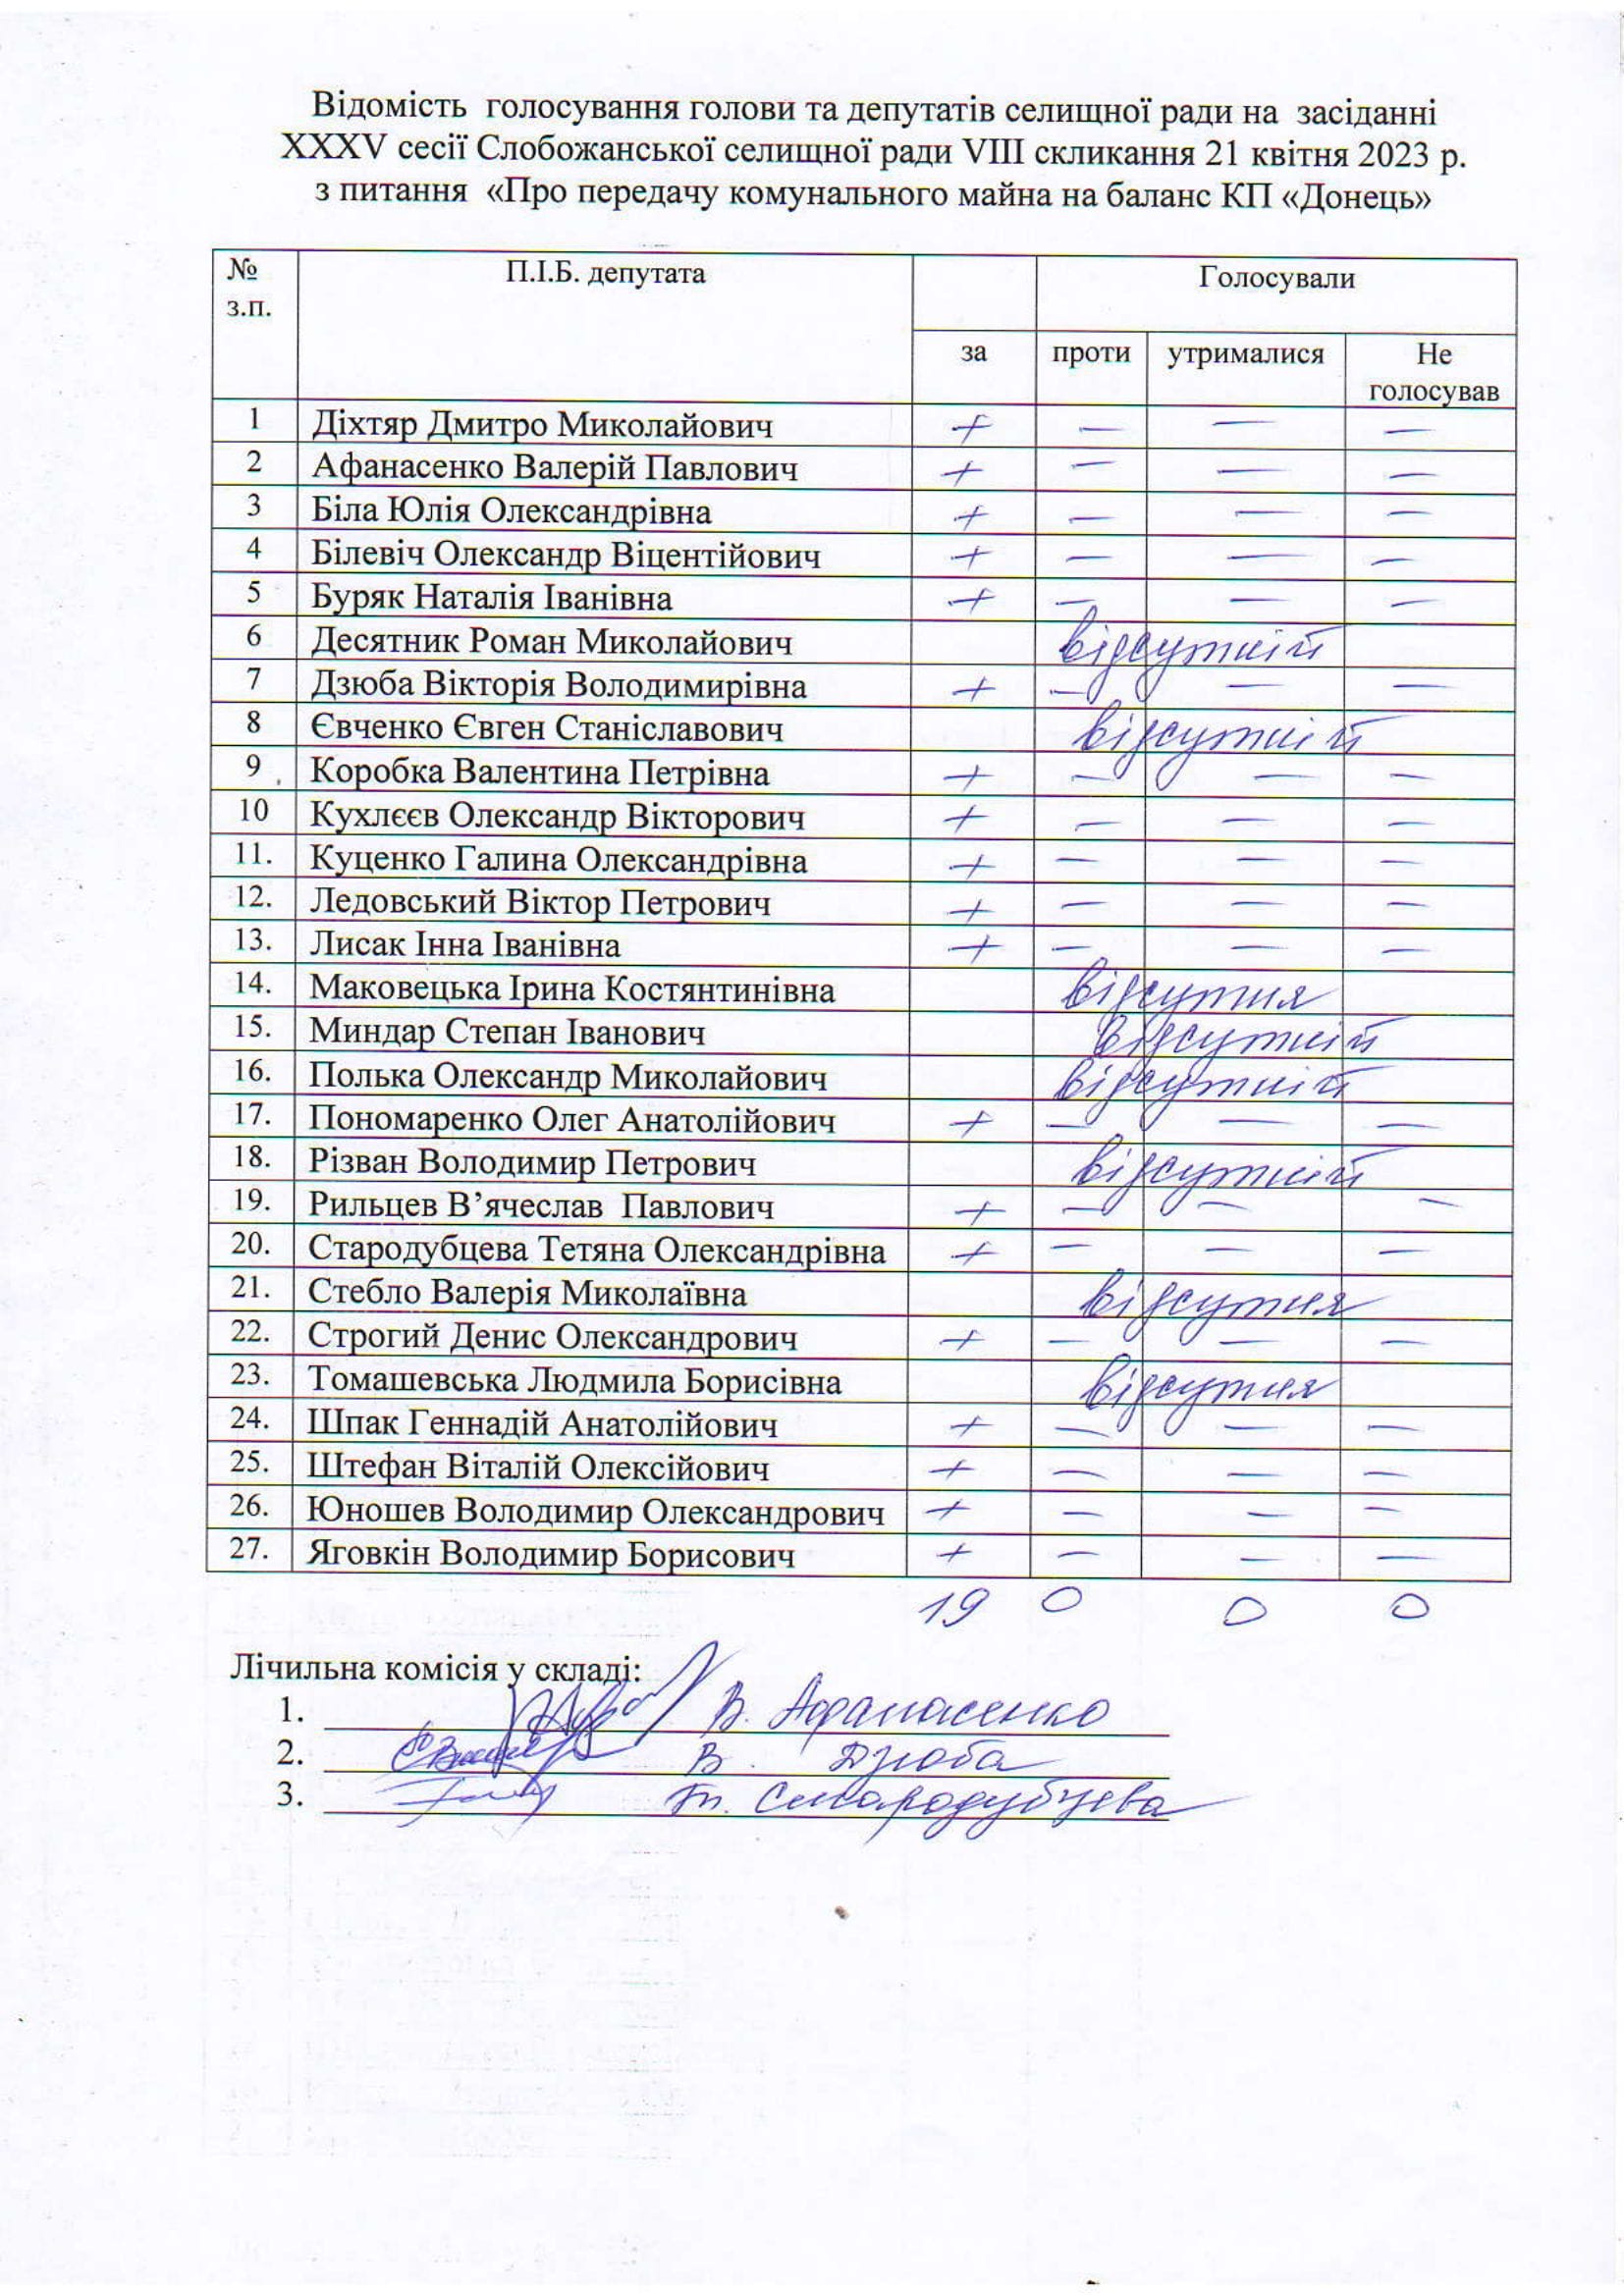 Відомість голосування голови та депутатів селищної ради на засіданні
XXXV сесії Слобожанської селищної ради VIII скликання 21 квітня 2023 р.
з питання «Про передачу комунального майна на баланс КП «Донець»
№ з.п. П.І.Б. депутата Голосували
за проти утрималися Не голосував
1 Діхтяр Дмитро Миколайович + — — —
2 Афанасенко Валерій Павлович + — — —
3 Біла Юлія Олександрівна + — — —
4 Білевіч Олександр Віцентійович + — — —
5 Буряк Наталія Іванівна + — — —
6 Десятник Роман Миколайович відсутній
7 Дзюба Вікторія Володимирівна + — — —
8 Євченко Євген Станіславович відсутній
9 Коробка Валентина Петрівна + — — —
10 Кухлєєв Олександр Вікторович + — — —
11. Куценко Галина Олександрівна + — — —
12. Ледовський Віктор Петрович + — — —
13. Лисак Інна Іванівна + — — —
14. Маковецька Ірина Костянтинівна відсутня
15. Миндар Степан Іванович відсутній
16. Полька Олександр Миколайович відсутній
17. Пономаренко Олег Анатолійович + — — —
18. Різван Володимир Петрович відсутній
19. Рильцев В’ячеслав Павлович + — — —
20. Стародубцева Тетяна Олександрівна + — — —
21. Стебло Валерія Миколаївна відсутня
22. Строгий Денис Олександрович + — — —
23. Томашевська Людмила Борисівна відсутня
24. Шпак Геннадій Анатолійович + — — —
25. Штефан Віталій Олексійович + — — —
26. Юношев Володимир Олександрович + — — —
27. Яговкін Володимир Борисович + — — —
19 0 0 0
Лічильна комісія у складі:
1. В. Афанасенко
2. В. Дзюба
3. Т. Стародубцева